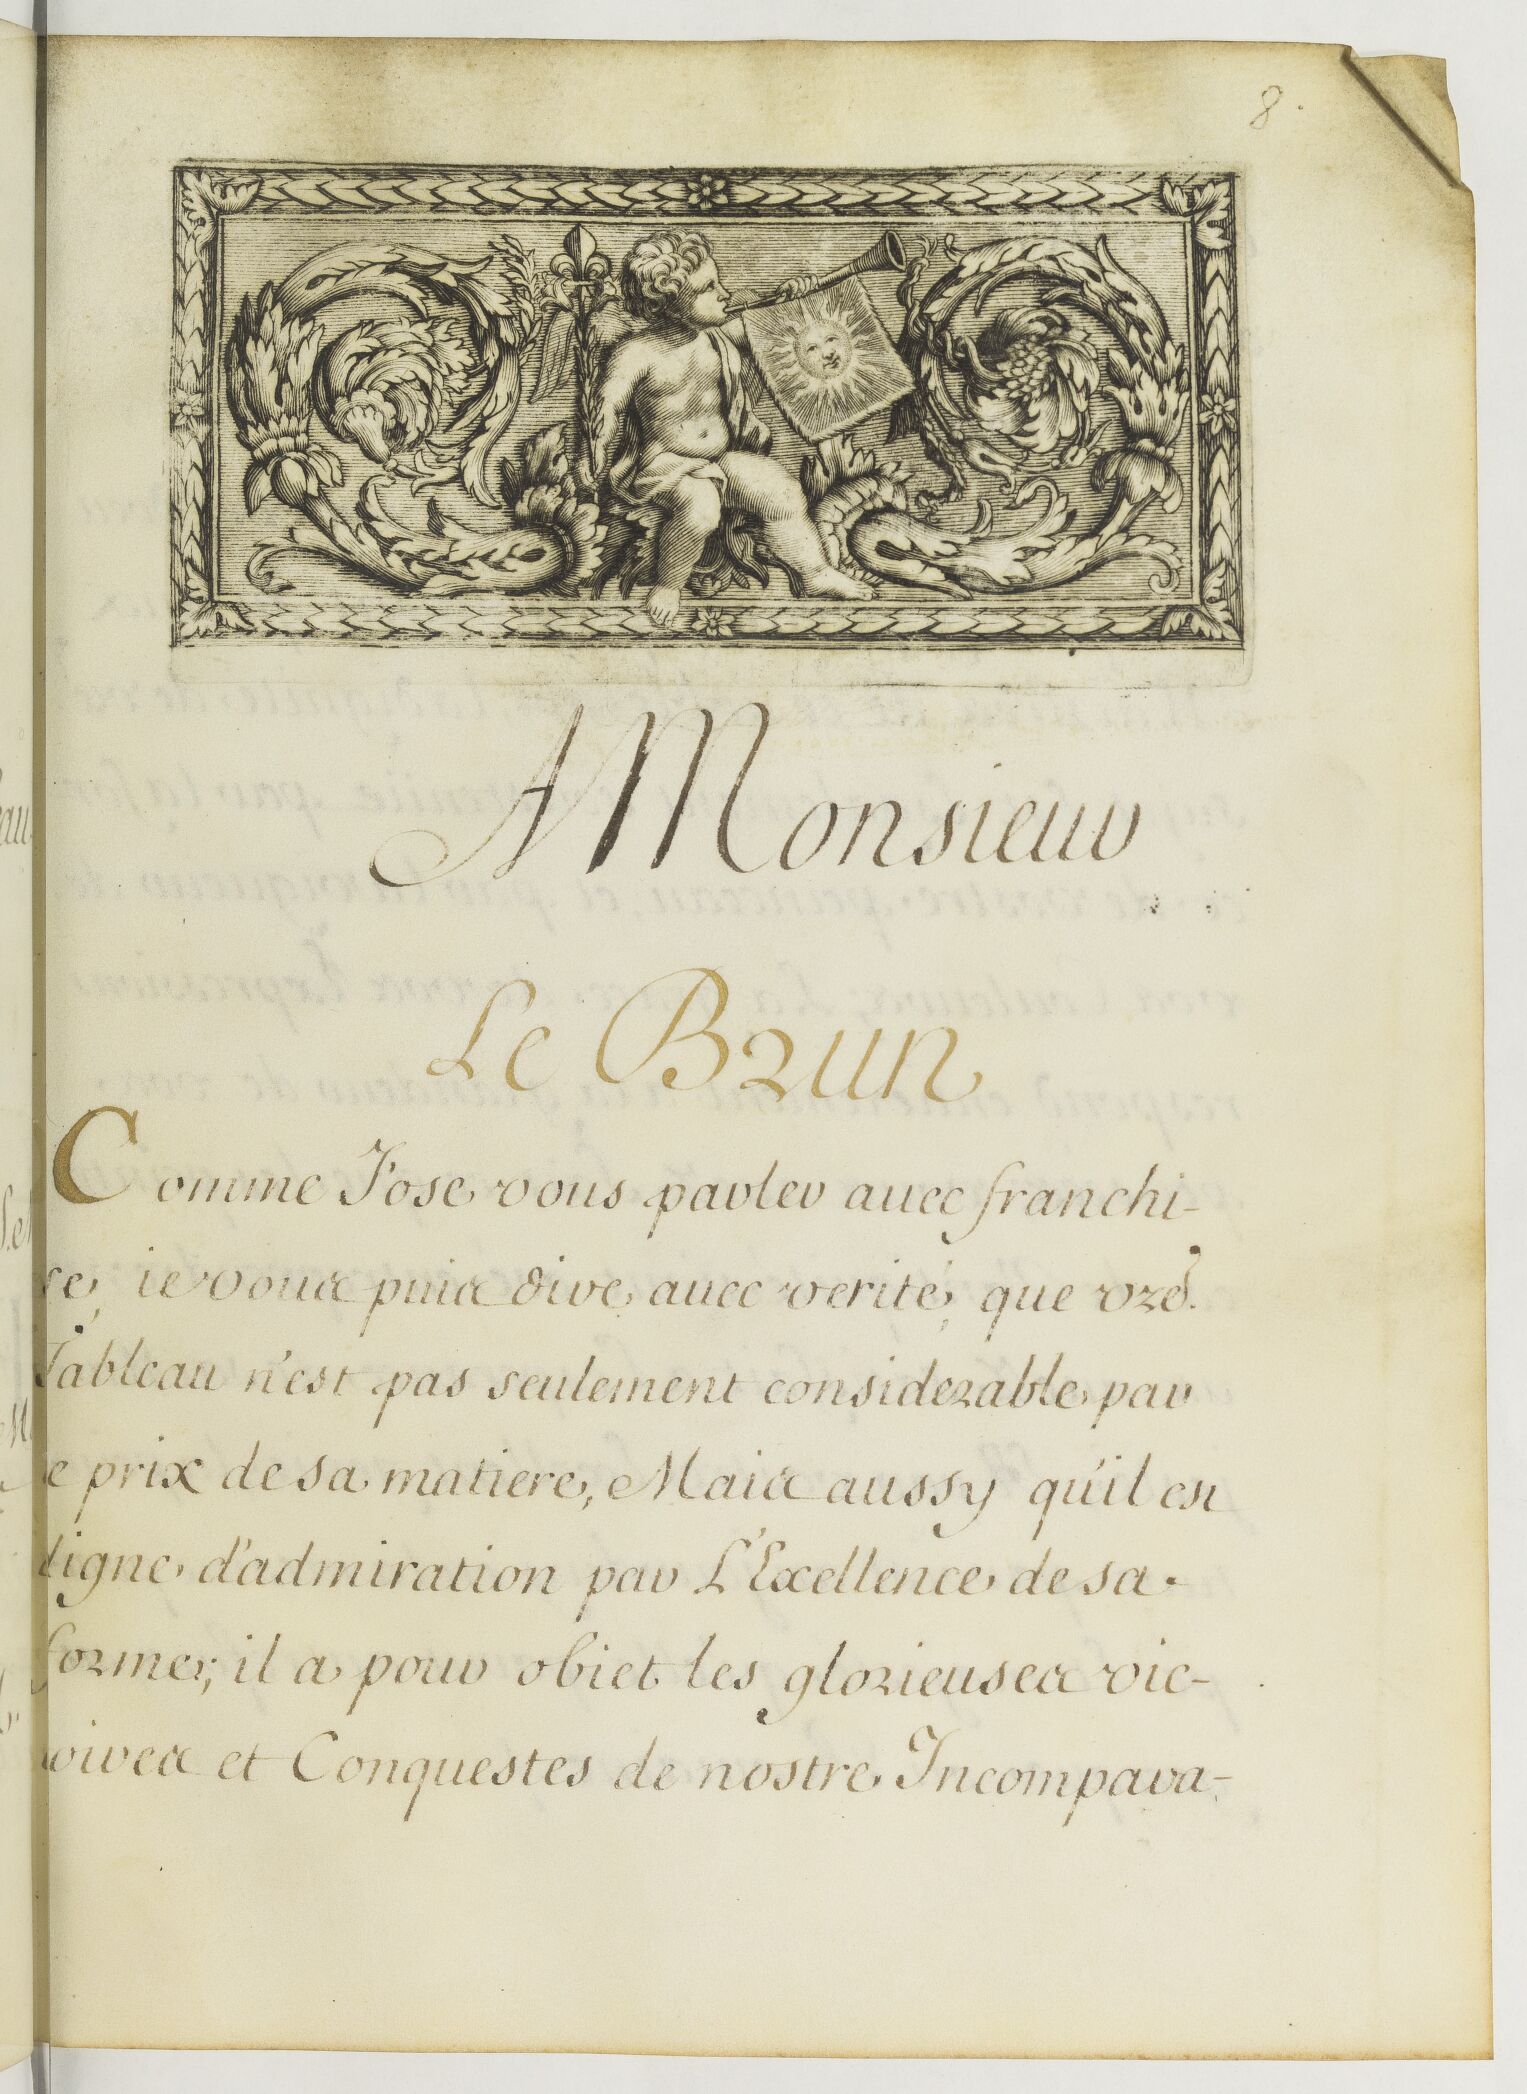 8.
A Monsieur
Le Brun
Comme J'ose vous parler auec franchi-
se, ie vous puis dire auec verité, que vre.
Tableau n'est pas seulement considerable par
le prix de sa matiere, Mais aussy qu'il est
digne d'admiration par L'Excellence de sa
forme; il a pour obiet les glorieuses vic-
toires et Conquestes de nostre Incompara-